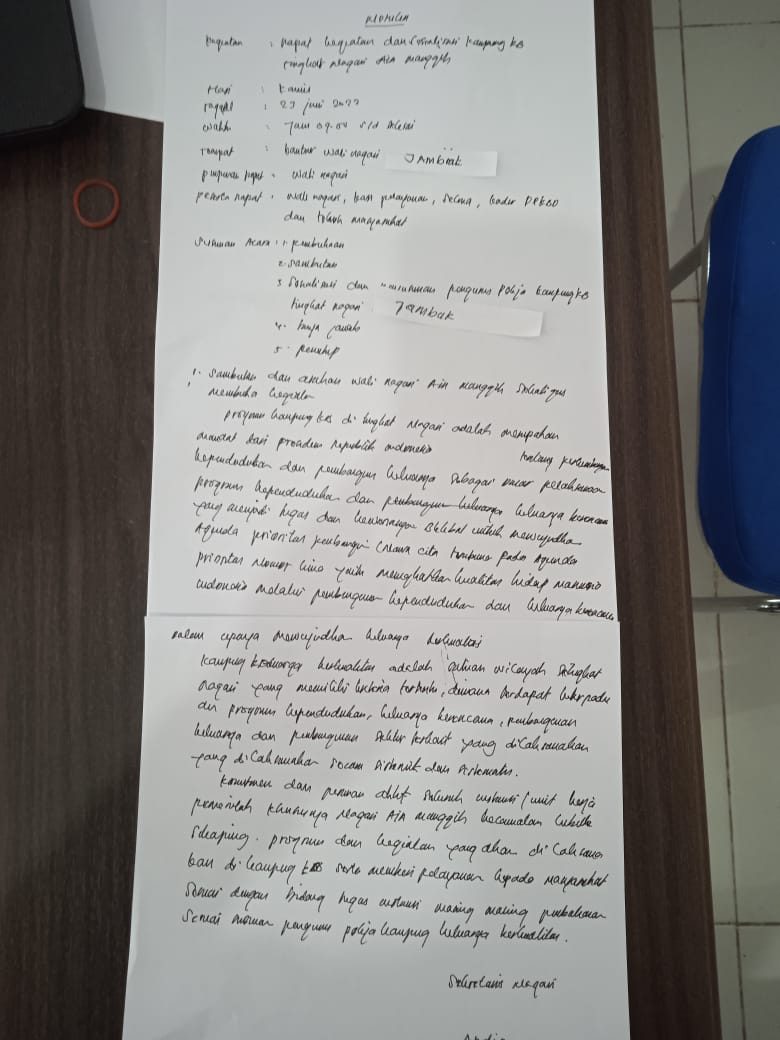 NOTULEN
Kegiatan : Rapat kegiatan dan sosialisasi kampung KB
tingkat Nagari Ain Manggih
Hari : Kamis
Tanggal : 23 Juni 2022
Waktu : Jam 09.00 s/d selesai
Tempat : Kantor wali nagari JAMBAK
Pimpinan rapat : wali nagari
Peserta rapat : wali nagari, kasi pelayanan, kader
dan tokoh masyarakat
Susunan Acara : 1. pembukaan
2. sambutan
3. Sosialisasi dan pengurus Pokja kampung KB
tingkat nagari Jambak
4. tanya jawab
5. penutup
1. Sambutan dan arahan wali nagari Ain Manggih sekaligus
membuka kegiatan
program kampung KB di tingkat Nagari adalah merupakan
mandat dari presiden Republik indonesia tentang perkembangan
kependudukan dan pembangunan keluarga sebagai pelaksanaan
program kependudukan dan pembangunan keluarga keluarga berencana
yang menjadi tugas dan kewenangan BKKBN untuk mewujudkan
Agenda prioritas pembangunan cita terutama pada Agenda
prioritas Nomor lima yaitu meningkatkan kualitas hidup manusia
indonesia melalui pembangunan kependudukan dan keluarga berencana
dalam upaya mewujudkan keluarga berkualitas
kampung keluarga berkualitas adalah satuan wilayah setingkat
nagari yang memiliki kriteria tertentu, dimana terdapat keterpaduan
program kependudukan, keluarga berencana, pembangunan
keluarga dan pembangunan sektor terkait yang dilaksanakan
yang dilaksanakan secara sistemik dan sistematis.
Komitmen dan peranan aktif seluruh instansi / unit kerja
pemerintah khususnya Nagari Ain Manggih kecamatan Lubuk
Sikaping. program dan kegiatan yang akan di laksana
kan di kampung KB serta memberi pelayanan kepada masyarakat
sesuai dengan bidang tugas instansi masing masing
pengurus pokja kampung keluarga berkualitas.
Sekretaris Nagari